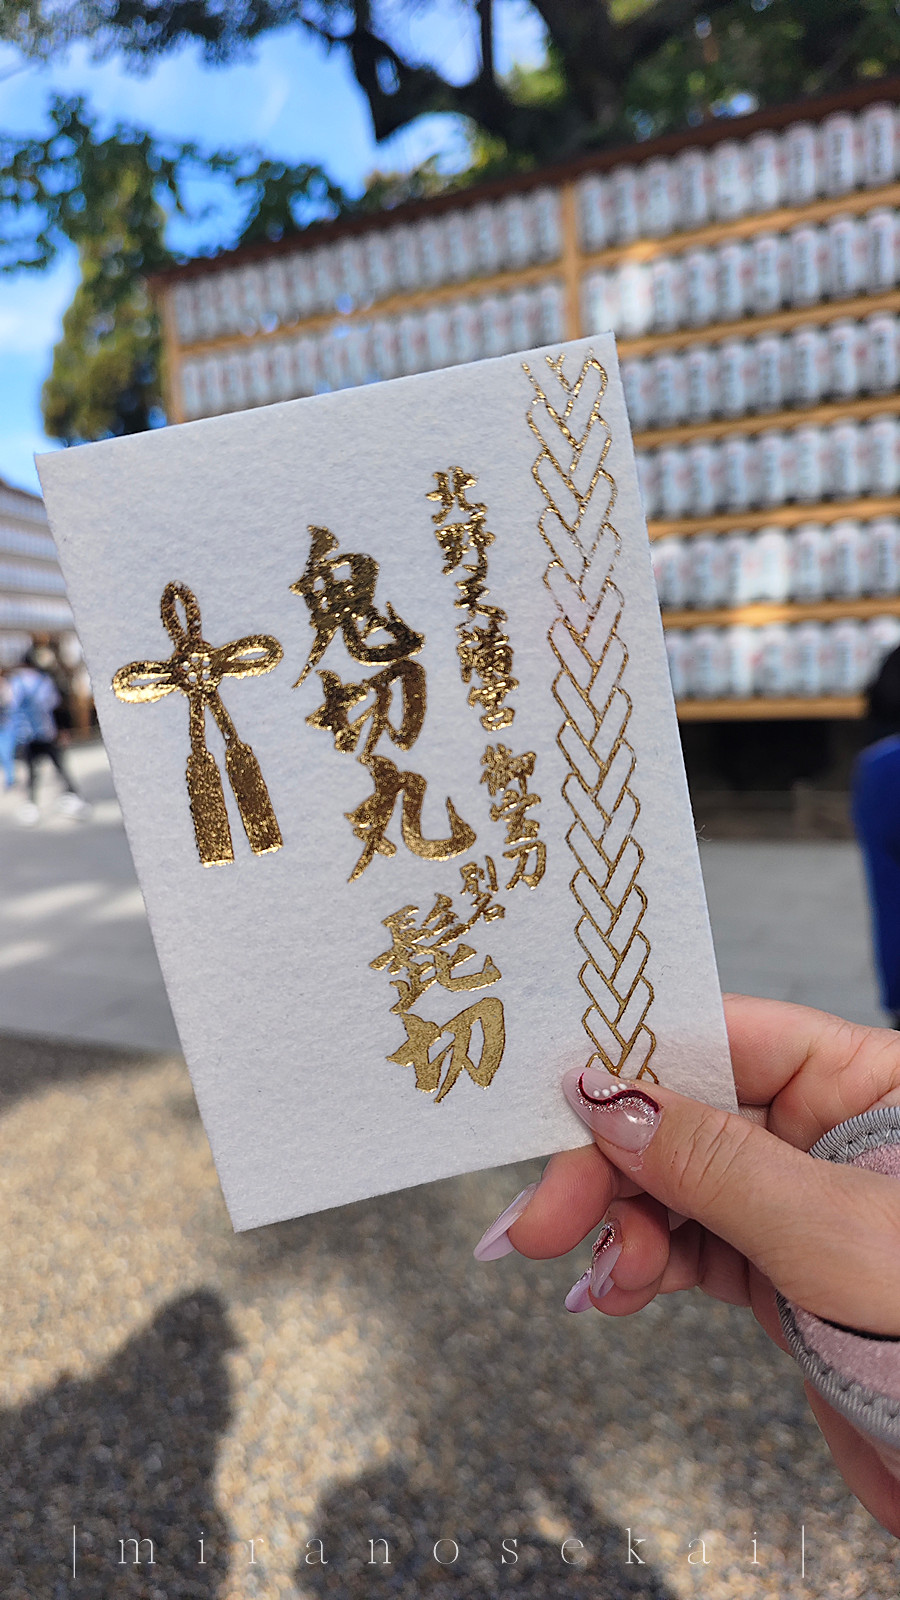 北野天満宮 御宝刀
鬼切丸
別名
髭切
|miranosekai|